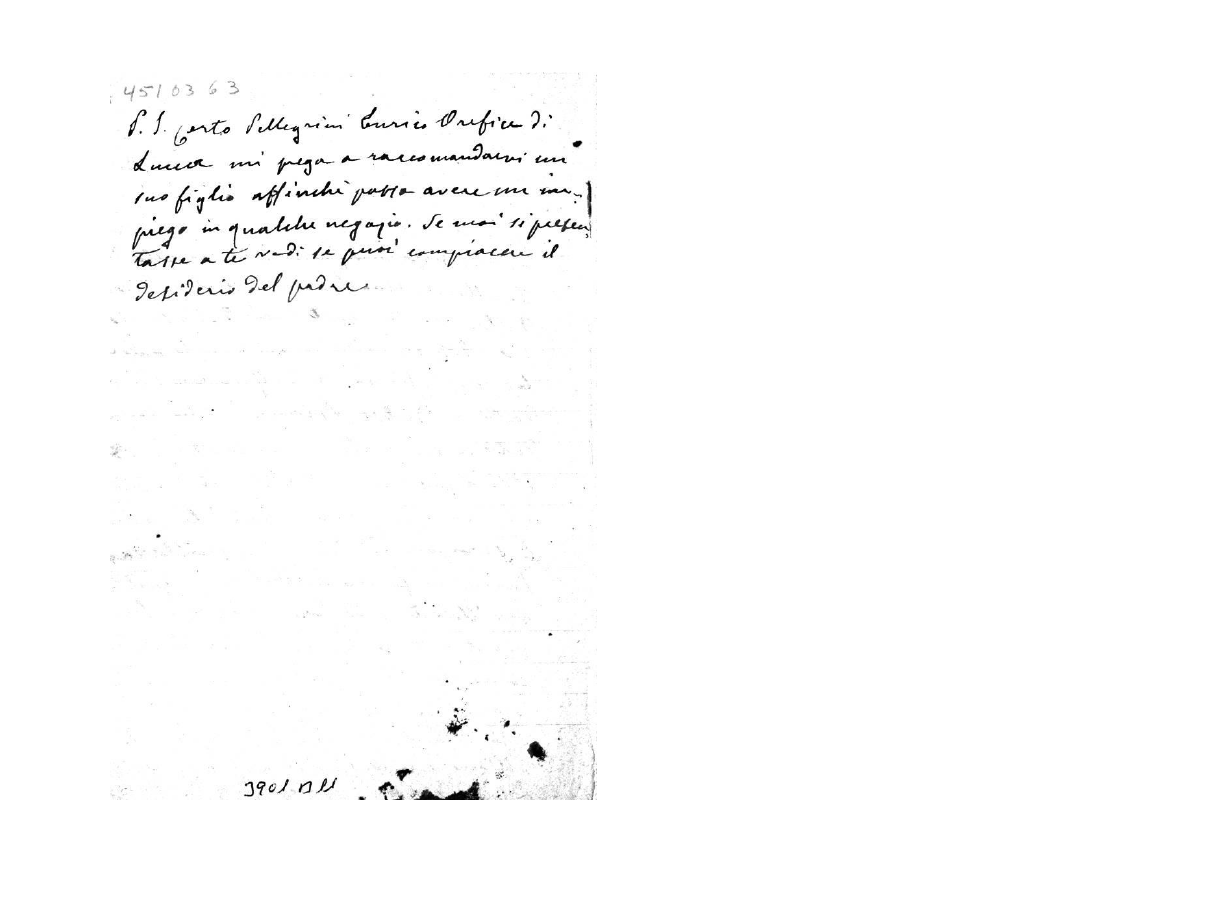 451 03 63
P. S. Certo Pellegrini Enrico Orefice di
Lucca mi pega a raccomandarvi un
suo figlio affinchè possa avere un im-
piego in qualche negozio. Se mai si presen
tasse a te vedi se puoi compiacere il
desiderio del padre
3901 B